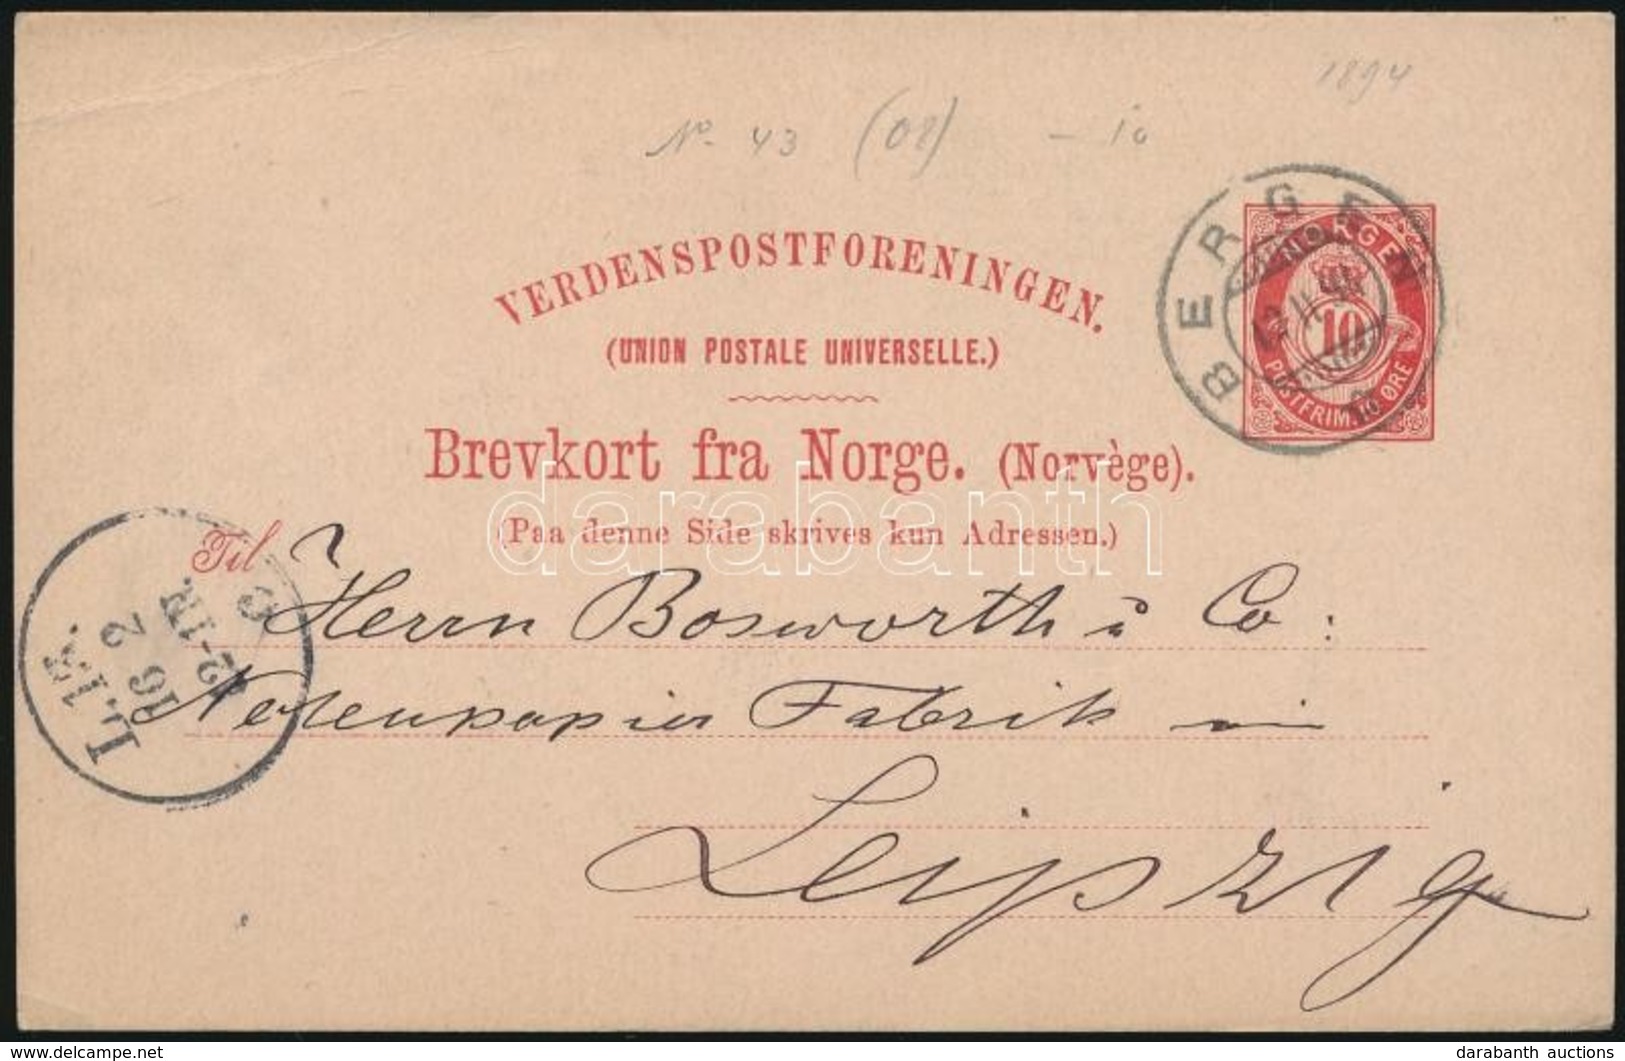 1894
No. 43 (02) - 10
BERGEN
12 II
NORGEN
10
POSTFRIM. 10 ØRE
VERDENSPOSTFORENINGEN.
(UNION POSTALE UNIVERSELLE.)
Brevkort fra Norge. (Norvège).
(Paa denne Side skrives kun Adressen.)
darabanth
Til Herrn Bosworth & Co:
Notenpapier Fabrik in
Leipzig
16 2
delcampe.net
darabanth auctions